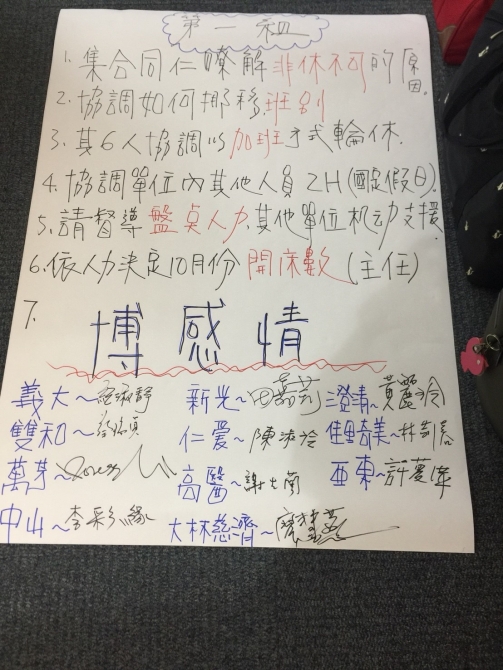 第一組
1. 集合同仁瞭解非休不可的原因.
2. 協調如何挪移班別
3. 其6人協調以加班方式輪休.
4. 協調單位內其他人員2H(醒假日).
5. 請督導盤桌人力.其他單位机动支援.
6. 依人力決定10月份開床數(主任)
7. 博感情
義大~ 新光~田嘉莉 澄清~黃麗玲
雙和~ 仁爱~陳淑冷 佳里奇美~林
萬芳~ 高醫~謝 亞東~許
中山~李彩緣 大林慈濟~